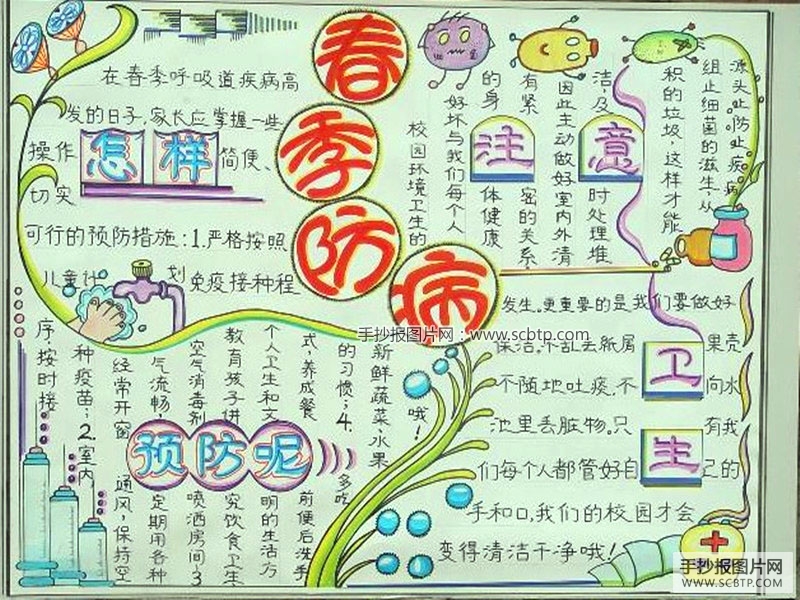 春季防病
在春季呼吸道疾病高
发的日子,家长应掌握一些
操作 简便、
怎样
切实
可行的预防措施:1.严格按照
儿童计 划免疫接种程
序按时接
种疫苗;2.室内
经常开窗 通风,保持空
气流畅, 定期用各种
空气消毒剂 喷洒房间;3
教育孩子讲 究饮食卫生
个人卫生和文 明的生活方
式,养成餐 前便后洗手
的习惯;4. 多吃
新鲜蔬菜、水果
哦!
预防呢
注意
校园环境卫生的
好坏与我们每个人
的身 体健康
有紧 密的关系
因此主动做好室内外清
洁及 时处理堆
积的垃圾,这样才能
组止细菌的滋生、从
源头止防止疾病
发生。更重要的是我们要做好
保洁,不乱丢纸屑 果壳
不随地吐痰,不 向水
池里丢脏物。只 有我
们每个人都管好自 己的
手和口,我们的校园才会
变得清洁干净哦!
卫生
手抄报图片网:www.scbtp.com
手抄报图片网
WWW.SCBTP.COM